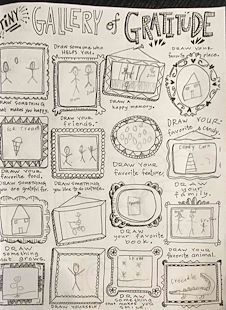 TINY GALLERY of GRATITUDE
DRAW someone who
HELPS YOU.
DRAW YOUR
favorite place.
DRAW SOMETHING
that makes you happy.
DRAW a
happy memory.
ICE CREAM
DRAW YOUR
friends.
DRAW YOUR
favorite candy.
CANDY CORN
DRAW YOUR
favorite food.
DRAW YOUR
favorite feature.
DRAW SOMETHING
you are grateful for.
DRAW SOMETHING
you like to do outside.
DRAW
your
family.
DRAW
your favorite
book.
DRAW
something
that grows.
DRAW YOUR
favorite animal.
DRAW YOURSELF
DRAW
something
that makes you